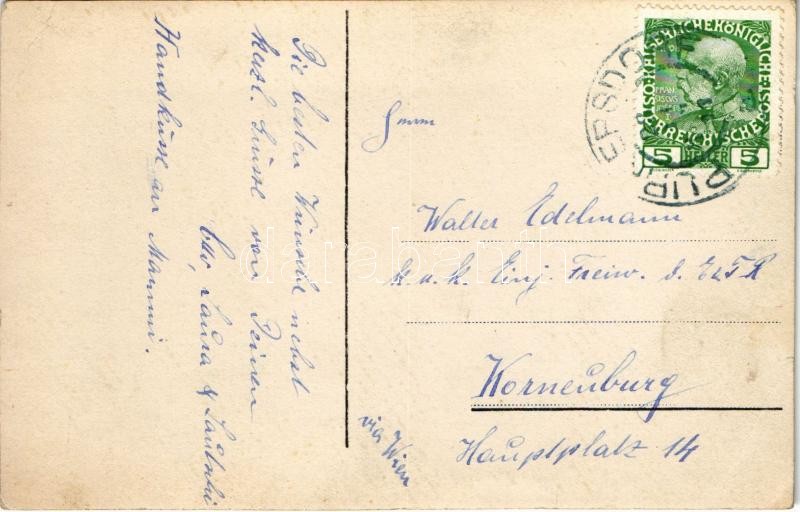 Die besten Wünsche nebst
herzl. Grüsse von Deinen
Otto, Laura &
Handküsse an Mammi.
Herrn
Walter Edelmann
k. u. k. Einj. Freiw. d. E.T.R
Korneuburg
Hauptplatz 14
via Wien
KAISERLICHE KÖNIGLICHE
ÖSTERREICHISCHE
5 HELLER 5
PURKERSDORF
darabanth